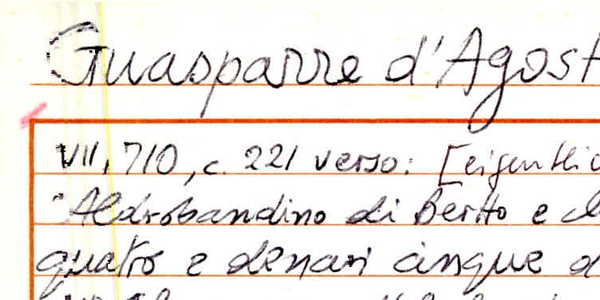 Guasparre d'Agost
VII, 710, c. 221 verso: [eigentlic
"Aldrobandino di Berto e
quatro e denari cinque d